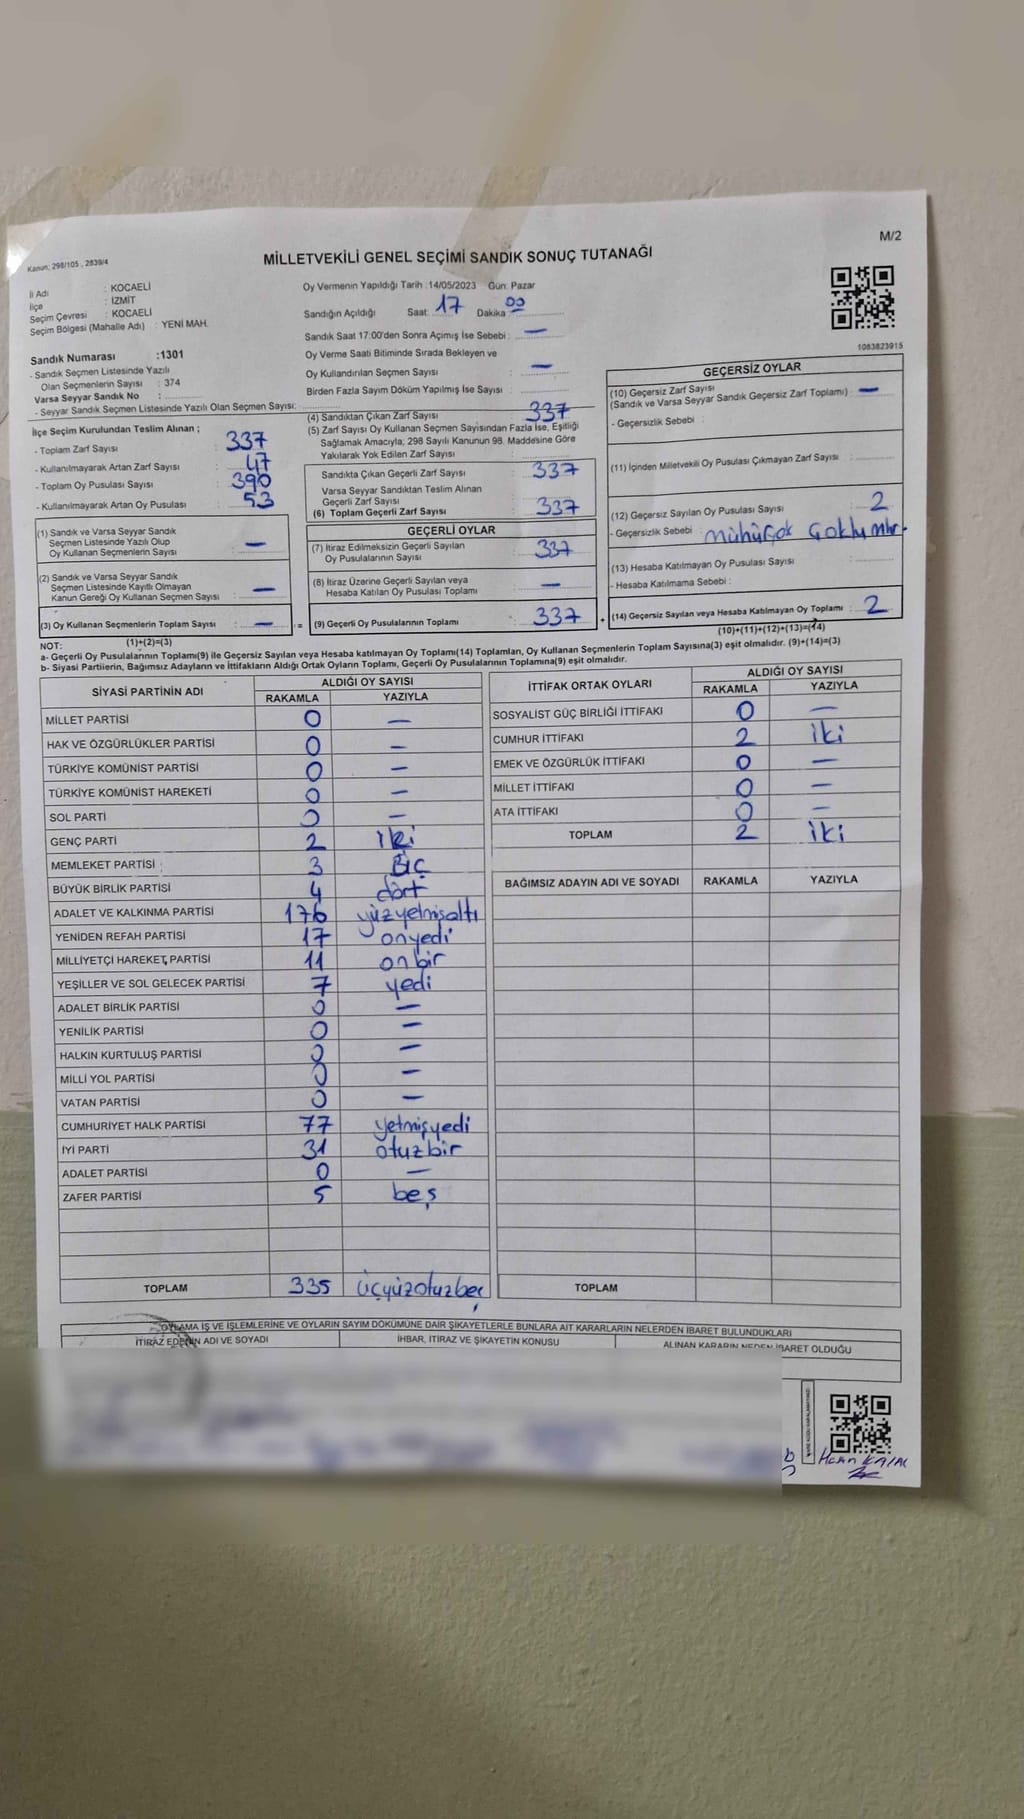 M/2
Kanun; 298/105 , 2839/4
MİLLETVEKİLİ GENEL SEÇİMİ SANDIK SONUÇ TUTANAĞI
İl Adı : KOCAELİ
İlçe : İZMİT
Seçim Çevresi : KOCAELİ
Seçim Bölgesi (Mahalle Adı) : YENİ MAH.
Sandık Numarası :1301
- Sandık Seçmen Listesinde Yazılı
Olan Seçmenlerin Sayısı : 374
Varsa Seyyar Sandık No :
- Seyyar Sandık Seçmen Listesinde Yazılı Olan Seçmen Sayısı:
Oy Vermenin Yapıldığı Tarih :14/05/2023 Gün: Pazar
Sandığın Açıldığı Saat: 17 Dakika : 00
Sandık Saat 17:00'den Sonra Açımış İse Sebebi : —
Oy Verme Saati Bitiminde Sırada Bekleyen ve
Oy Kullandırılan Seçmen Sayısı : —
Birden Fazla Sayım Döküm Yapılmış İse Sayısı :
1083823915
İlçe Seçim Kurulundan Teslim Alınan ;
- Toplam Zarf Sayısı : 337
- Kullanılmayarak Artan Zarf Sayısı : 47
- Toplam Oy Pusulası Sayısı : 390
- Kullanılmayarak Artan Oy Pusulası : 53
(1) Sandık ve Varsa Seyyar Sandık
Seçmen Listesinde Yazılı Olup
Oy Kullanan Seçmenlerin Sayısı : —
(2) Sandık ve Varsa Seyyar Sandık
Seçmen Listesinde Kayıtlı Olmayan
Kanun Gereği Oy Kullanan Seçmen Sayısı : —
(3) Oy Kullanan Seçmenlerin Toplam Sayısı : — =
(1)+(2)=(3)
(4) Sandıktan Çıkan Zarf Sayısı : 337
(5) Zarf Sayısı Oy Kullanan Seçmen Sayısından Fazla İse, Eşitliği
Sağlamak Amacıyla, 298 Sayılı Kanunun 98. Maddesine Göre
Yakılarak Yok Edilen Zarf Sayısı :
Sandıkta Çıkan Geçerli Zarf Sayısı : 337
Varsa Seyyar Sandıktan Teslim Alınan
Geçerli Zarf Sayısı
(6) Toplam Geçerli Zarf Sayısı : 337
GEÇERLİ OYLAR
(7) İtiraz Edilmeksizin Geçerli Sayılan
Oy Pusulasının Sayısı : 337
(8) İtiraz Üzerine Geçerli Sayılan veya
Hesaba Katılan Oy Pusulası Toplamı : —
(9) Geçerli Oy Pusulalarının Toplamı : 337 +
GEÇERSİZ OYLAR
(10) Geçersiz Zarf Sayısı
(Sandık ve Varsa Seyyar Sandık Geçersiz Zarf Toplamı) : —
- Geçersizlik Sebebi :
(11) İçinden Milletvekili Oy Pusulası Çıkmayan Zarf Sayısı :
(12) Geçersiz Sayılan Oy Pusulası Sayısı : 2
- Geçersizlik Sebebi :
(13) Hesaba Katılmayan Oy Pusulası Sayısı :
- Hesaba Katılmama Sebebi :
(14) Geçersiz Sayılan veya Hesaba Katılmayan Oy Toplamı : 2
(10)+(11)+(12)+(13)=(14)
NOT:
a- Geçerli Oy Pusulalarının Toplamı(9) ile Geçersiz Sayılan veya Hesaba katılmayan Oy Toplamı(14) Toplamları, Oy Kullanan Seçmenlerin Toplam Sayısına(3) eşit olmalıdır. (9)+(14)=(3)
b- Siyasi Partilerin, Bağımsız Adayların ve İttifakların Aldığı Ortak Oyların Toplamı, Geçerli Oy Pusulalarının Toplamına(9) eşit olmalıdır.
SİYASİ PARTİNİN ADI ALDIĞI OY SAYISI
RAKAMLA YAZIYLA
MİLLET PARTİSİ 0 —
HAK VE ÖZGÜRLÜKLER PARTİSİ 0 —
TÜRKİYE KOMÜNİST PARTİSİ 0 —
TÜRKİYE KOMÜNİST HAREKETİ 0 —
SOL PARTİ 0 —
GENÇ PARTİ 2 iki
MEMLEKET PARTİSİ 3 üç
BÜYÜK BİRLİK PARTİSİ 4 dört
ADALET VE KALKINMA PARTİSİ 176 yüzyetmişaltı
YENİDEN REFAH PARTİSİ 17 onyedi
MİLLİYETÇİ HAREKET PARTİSİ 11 onbir
YEŞİLLER VE SOL GELECEK PARTİSİ 7 yedi
ADALET BİRLİK PARTİSİ 0 —
YENİLİK PARTİSİ 0 —
HALKIN KURTULUŞ PARTİSİ 0 —
MİLLİ YOL PARTİSİ 0 —
VATAN PARTİSİ 0 —
CUMHURİYET HALK PARTİSİ 77 yetmişyedi
İYİ PARTİ 31 otuzbir
ADALET PARTİSİ 0 —
ZAFER PARTİSİ 5 beş
TOPLAM 335 üçyüzotuzbeş
İTTİFAK ORTAK OYLARI ALDIĞI OY SAYISI
RAKAMLA YAZIYLA
SOSYALİST GÜÇ BİRLİĞİ İTTİFAKI 0 —
CUMHUR İTTİFAKI 2 iki
EMEK VE ÖZGÜRLÜK İTTİFAKI 0 —
MİLLET İTTİFAKI 0 —
ATA İTTİFAKI 0 —
TOPLAM 2 iki
BAĞIMSIZ ADAYIN ADI VE SOYADI RAKAMLA YAZIYLA
TOPLAM
OYLAMA İŞ VE İŞLEMLERİNE VE OYLARIN SAYIM DÖKÜMÜNE DAİR ŞİKAYETLERLE BUNLARA AİT KARARLARIN NELERDEN İBARET BULUNDUKLARI
İTİRAZ EDENİN ADI VE SOYADI İHBAR, İTİRAZ VE ŞİKAYETİN KONUSU ALINAN KARARIN NEDEN İBARET OLDUĞU